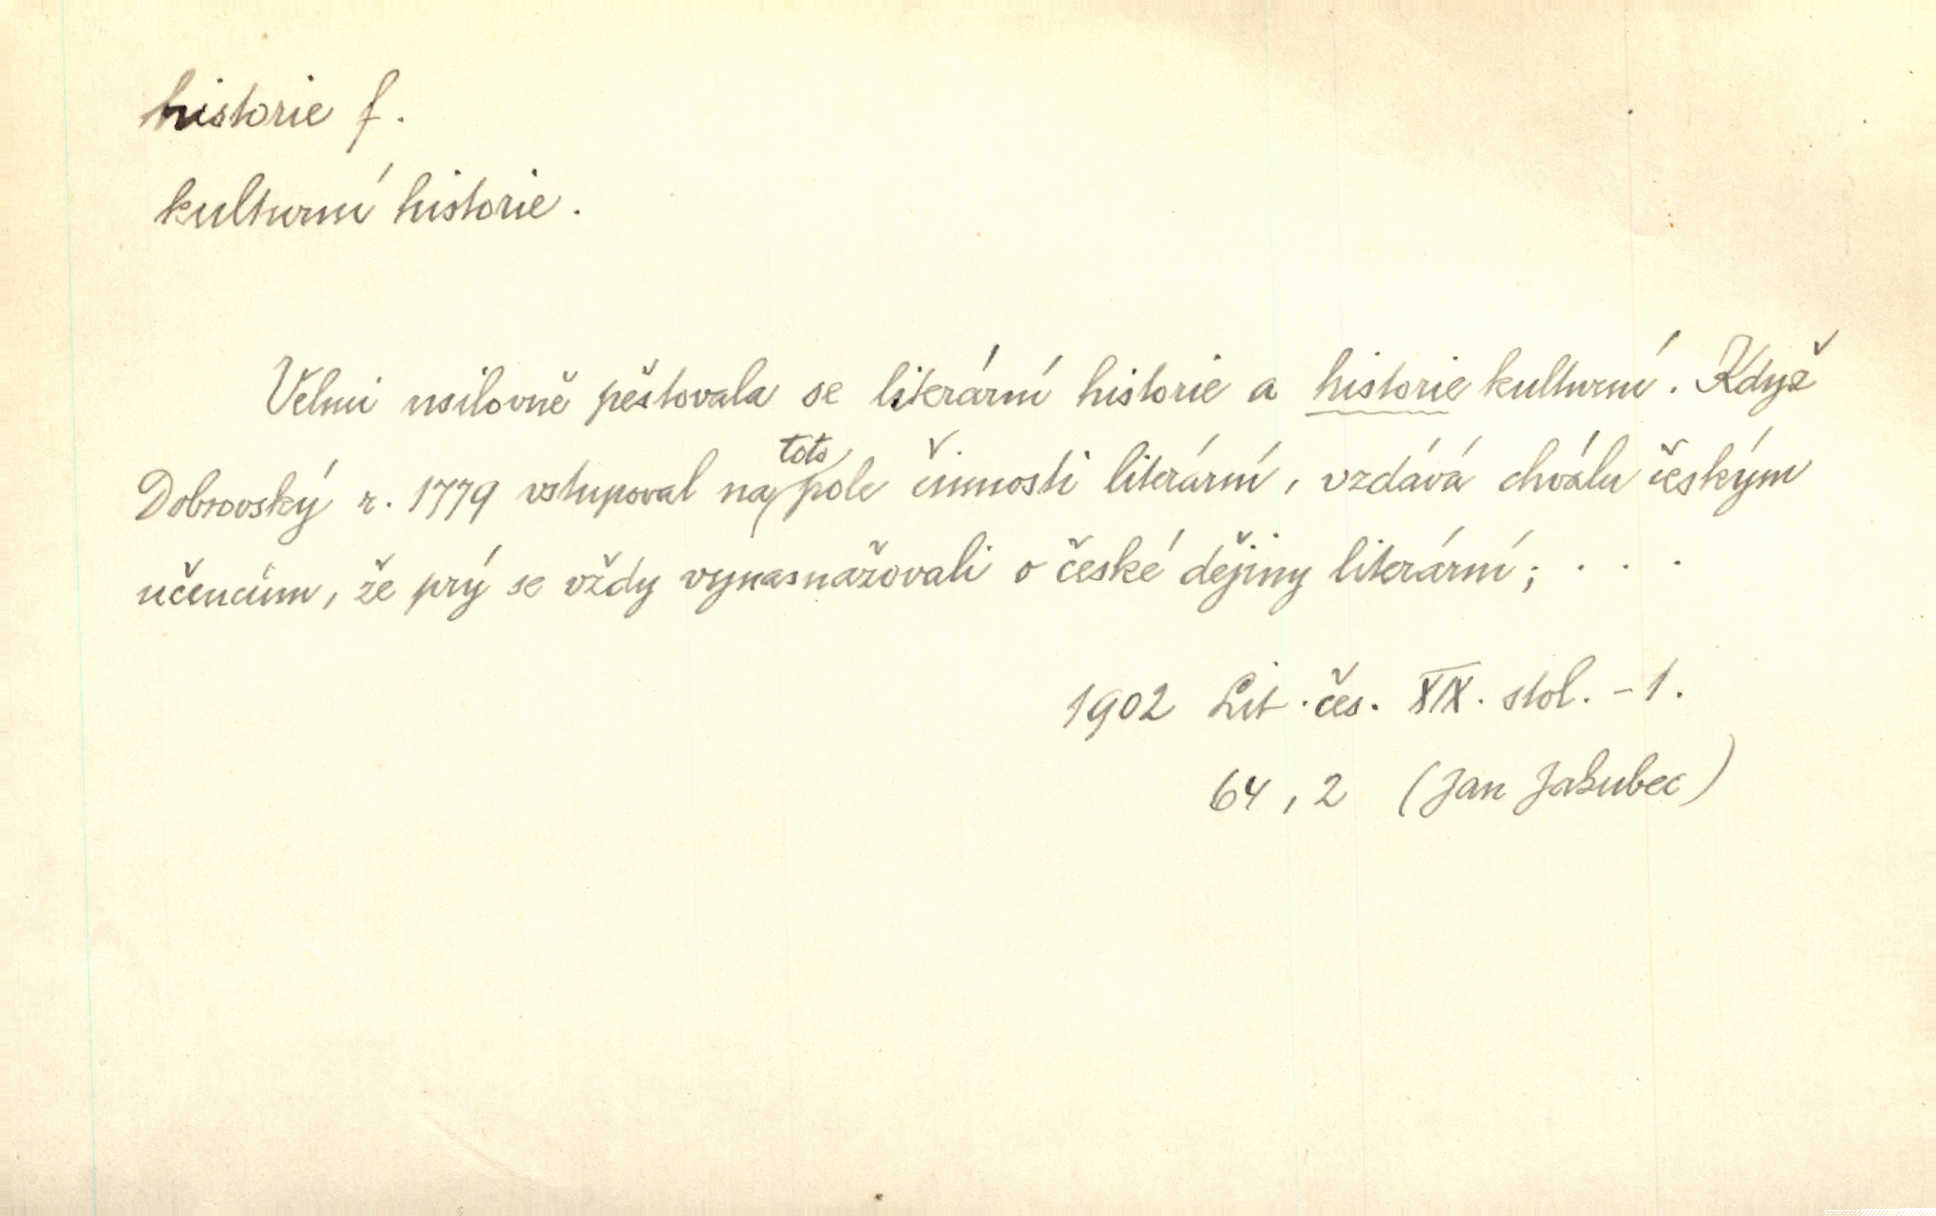 historie f.
kulturní historie.
Velmi usilovně pěstovala se literární historie a historie kulturní. Když
Dobrovský r. 1779 vstupoval na toto pole činnosti literární, vzdává chválu českým
učencům, že prý se vždy vynasnažovali o české dějiny literární; . . .
1902 Lit. čes. XIX. stol. - 1.
64, 2 (Jan Jakubec)